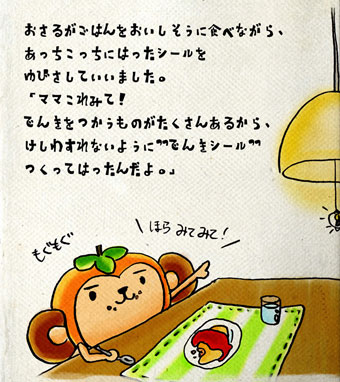 おさるがごはんをおいしそうに食べながら、
あっちこっちにはったシールを
ゆびさしていいました。
「ママこれみて!
でんきをつかうものがたくさんあるから、
けしわすれないように"でんきシール"
つくってはったんだよ。」
ほら みてみて!
もぐもぐ